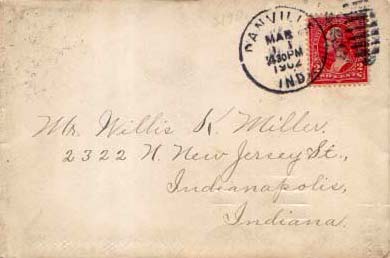 DANVILLE
MAR
1
1902
IND.
Mr. Willis K. Miller.
2322 N. New Jersey St.,
Indianapolis,
Indiana.